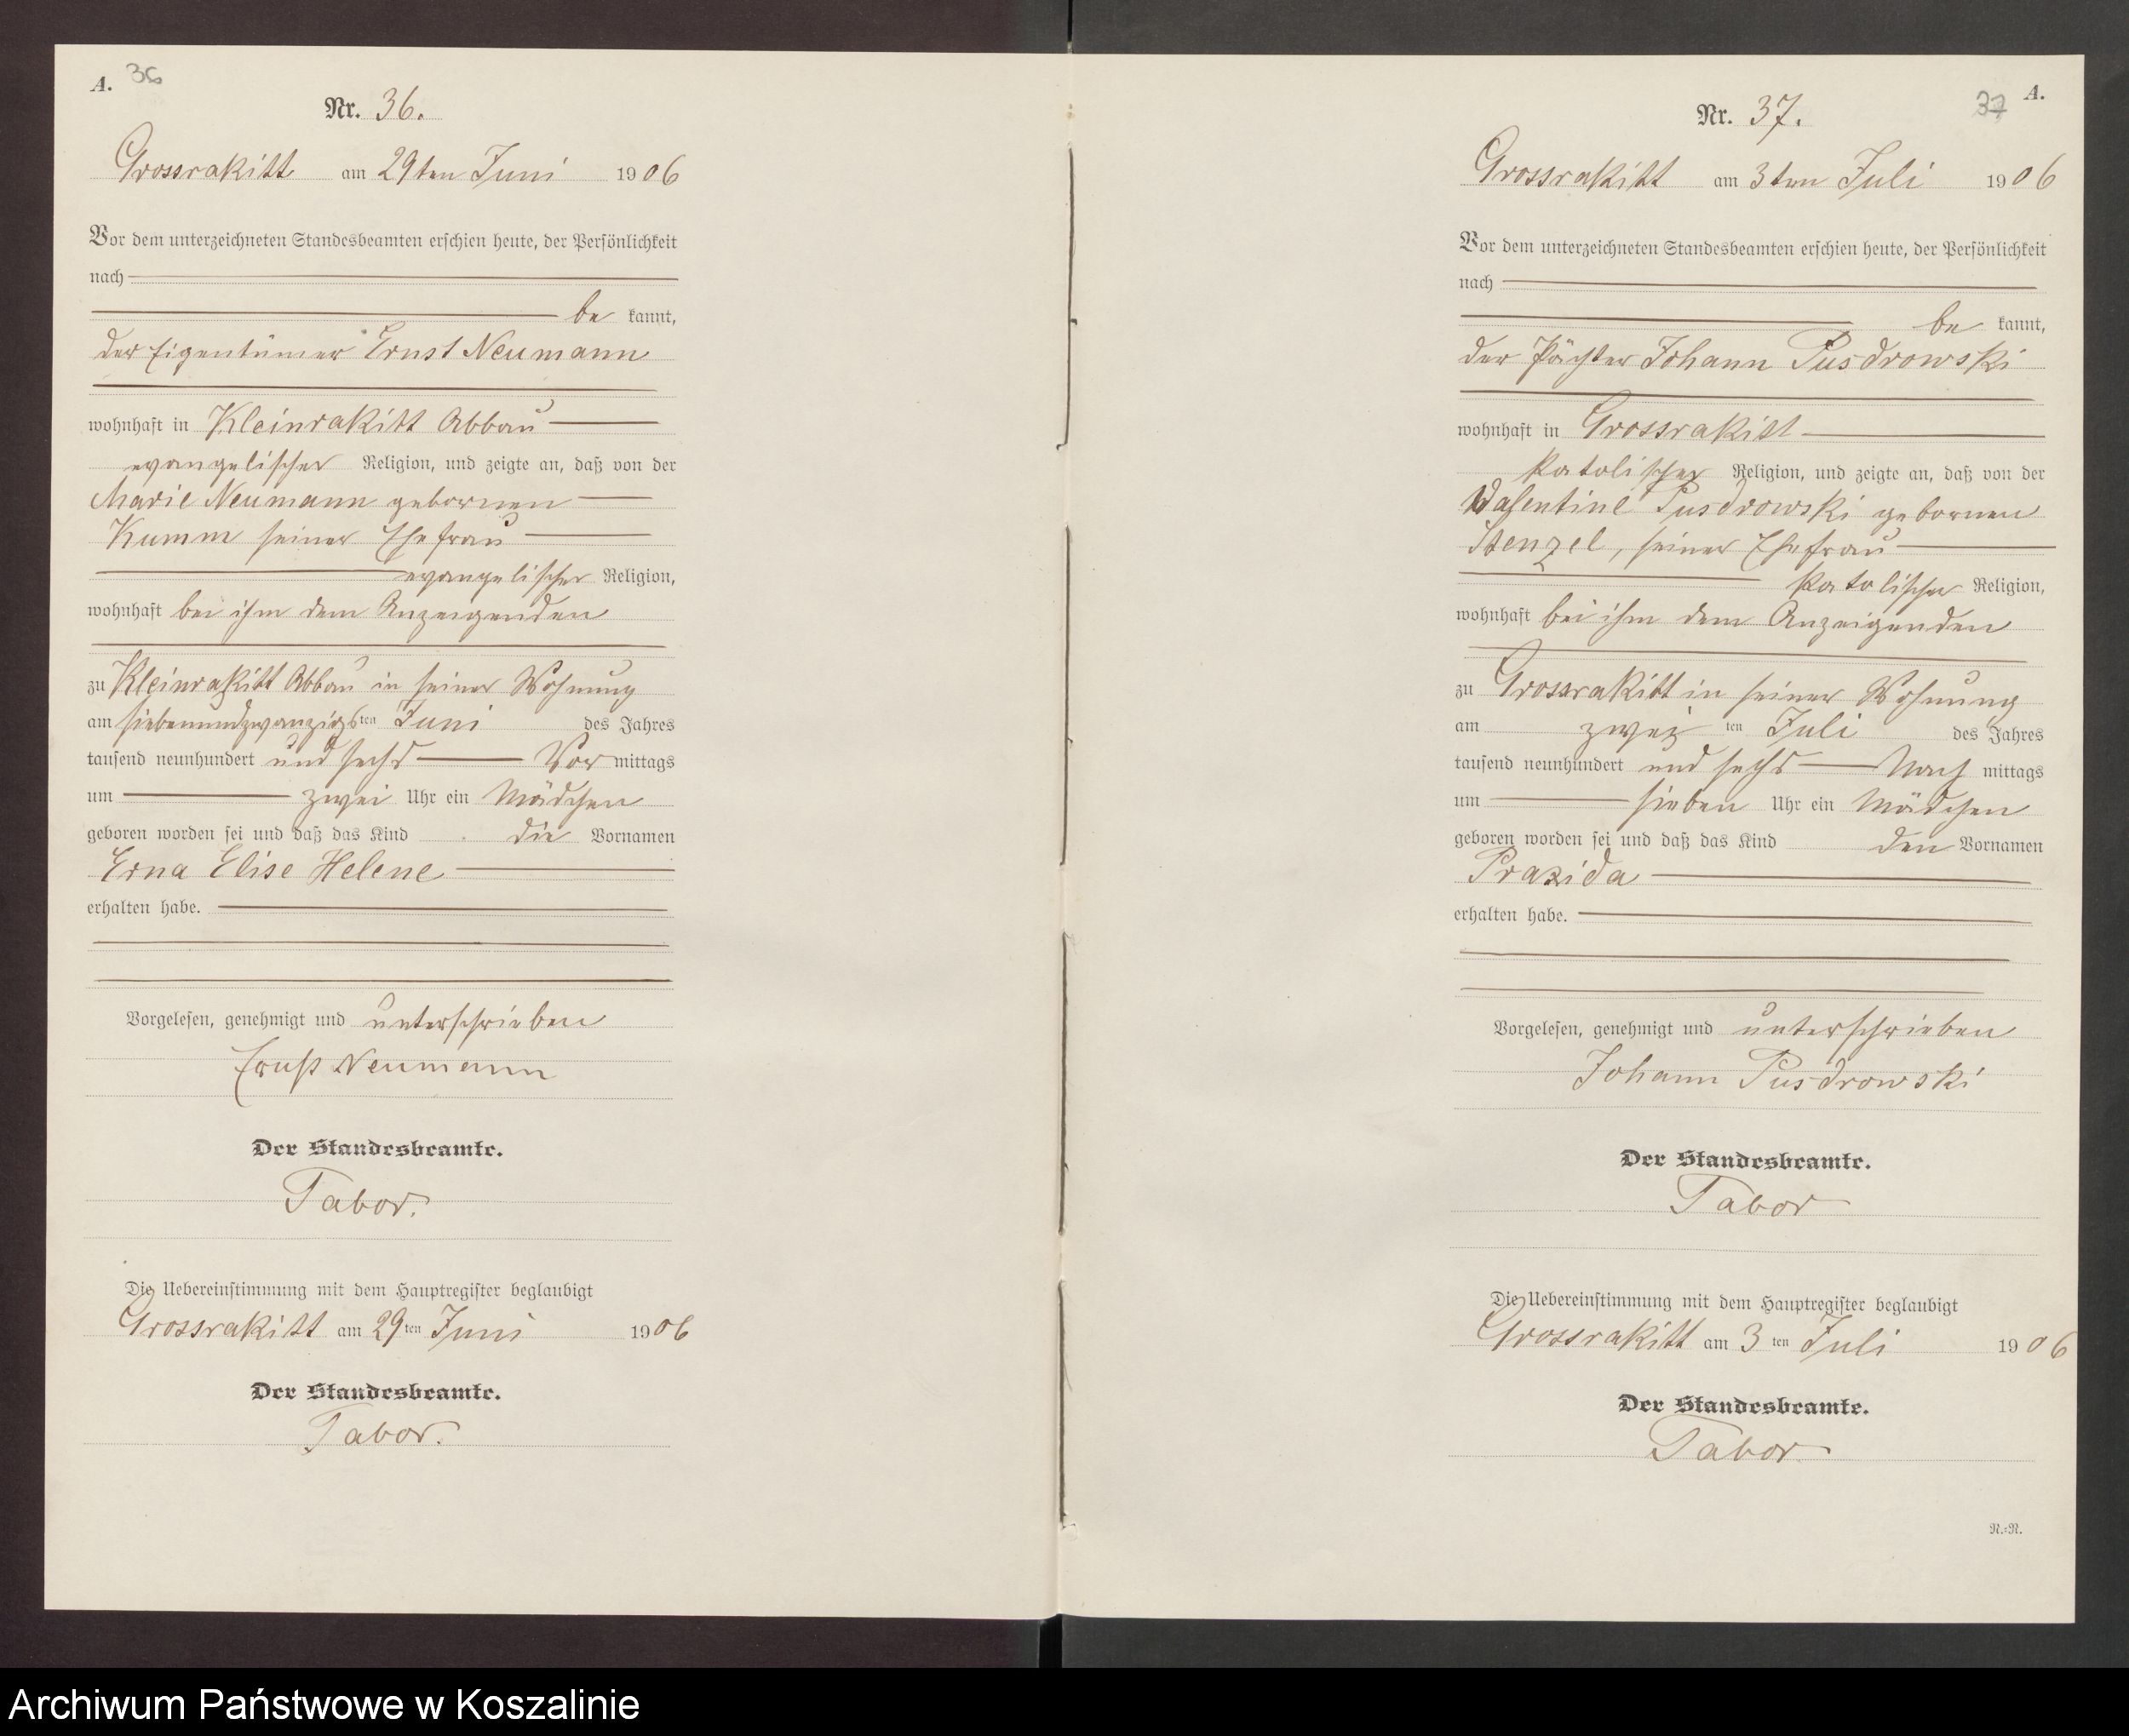 A. 36
Nr. 36.
Grossrakitt am 29ten Juni 1906
Vor dem unterzeichneten Standesbeamten erschien heute, der Persönlichkeit
nach
be kannt,
der Eigentümer Ernst Neumann
wohnhaft in Kleinrakitt Abbau
evangelischer Religion, und zeigte an, daß von der
Marie Neumann gebornen
Kumm seiner Ehefrau
evangelischer Religion,
wohnhaft bei ihm dem Anzeigenden
zu Kleinrakitt Abbau in seiner Wohnung
am siebenundzwanzigsten Juni des Jahres
tausend neunhundert und sechs Vor mittags
um zwei Uhr ein Mädchen
geboren worden sei und daß das Kind die Vornamen
Erna Elise Helene
erhalten habe.
Vorgelesen, genehmigt und unterschrieben
Ernst Neumann
Der Standesbeamte.
Tabor.
Die Uebereinstimmung mit dem Hauptregister beglaubigt
Grossrakitt am 29ten Juni 1906
Der Standesbeamte.
Tabor.
37 A.
Nr. 37.
Grossrakitt am 3ten Juli 1906
Vor dem unterzeichneten Standesbeamten erschien heute, der Persönlichkeit
nach
be kannt,
der Pächter Johann Pusdrowski
wohnhaft in Grossrakitt
katolischer Religion, und zeigte an, daß von der
Valentine Pusdrowski gebornen
Stenzel, seiner Ehefrau
katolischer Religion,
wohnhaft bei ihm dem Anzeigenden
zu Grossrakitt in seiner Wohnung
am zwei ten Juli des Jahres
tausend neunhundert und sechs Nach mittags
um sieben Uhr ein Mädchen
geboren worden sei und daß das Kind den Vornamen
Praxida
erhalten habe.
Vorgelesen, genehmigt und unterschrieben
Johann Pusdrowski
Der Standesbeamte.
Tabor
Die Uebereinstimmung mit dem Hauptregister beglaubigt
Grossrakitt am 3 ten Juli 1906
Der Standesbeamte.
Tabor.
N.=N.
Archiwum Państwowe w Koszalinie